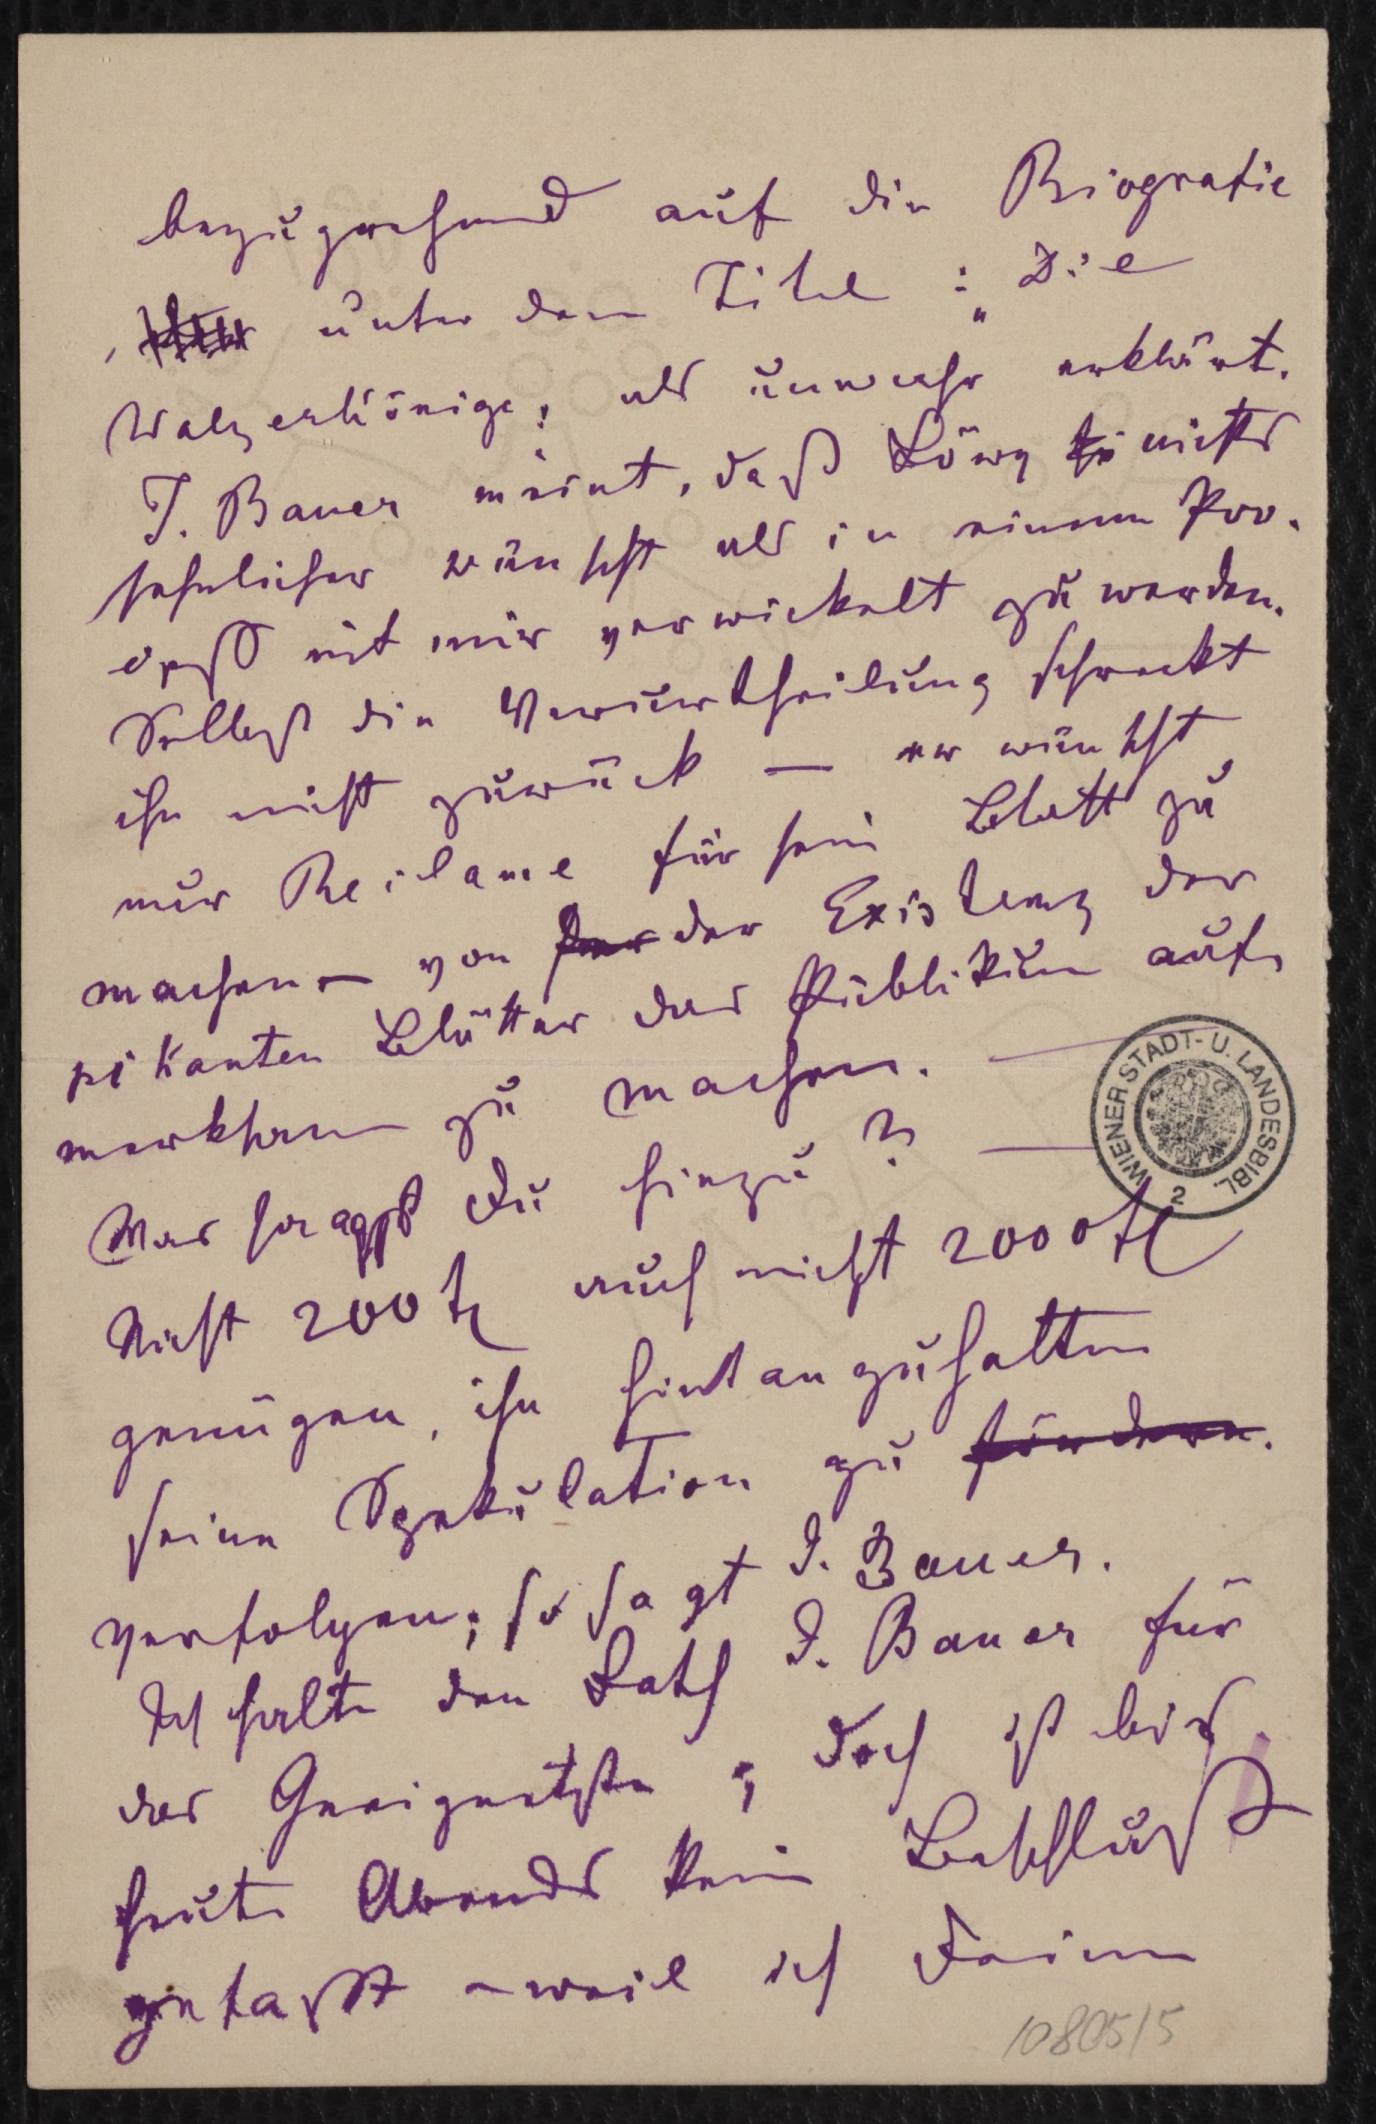 bezugnehmend auf die Biografie
unter dem Titel: „Die
Walzerkönige", als unwahr erklärt.
J. Bauer meint, daß Löwy nichts
sehnlicher wünscht als in einem Pro-
zeß mit mir verwickelt zu werden.
Selbst die Verurtheilung schreckt
ihn nicht zurück — er wünscht
nur Reclame für sein Blatt zu
machen — von der Existenz der
pikanten Blätter das Publikum auf-
merksam zu machen. —
Was sagst Du hiezu? —
Nicht 200 fl auch nicht 2000 fl
genügen, ihn hintanzuhalten
seine Spekulation zu fördern.
verfolgen; so sagt J. Bauer.
Ich halte den Rath J. Bauer für
das Geeignetste; doch ist bis
heute Abends kein Beschluß
gefaßt – weil ich Deine
WIENER STADT- U. LANDESBIBL.
2
10805/5